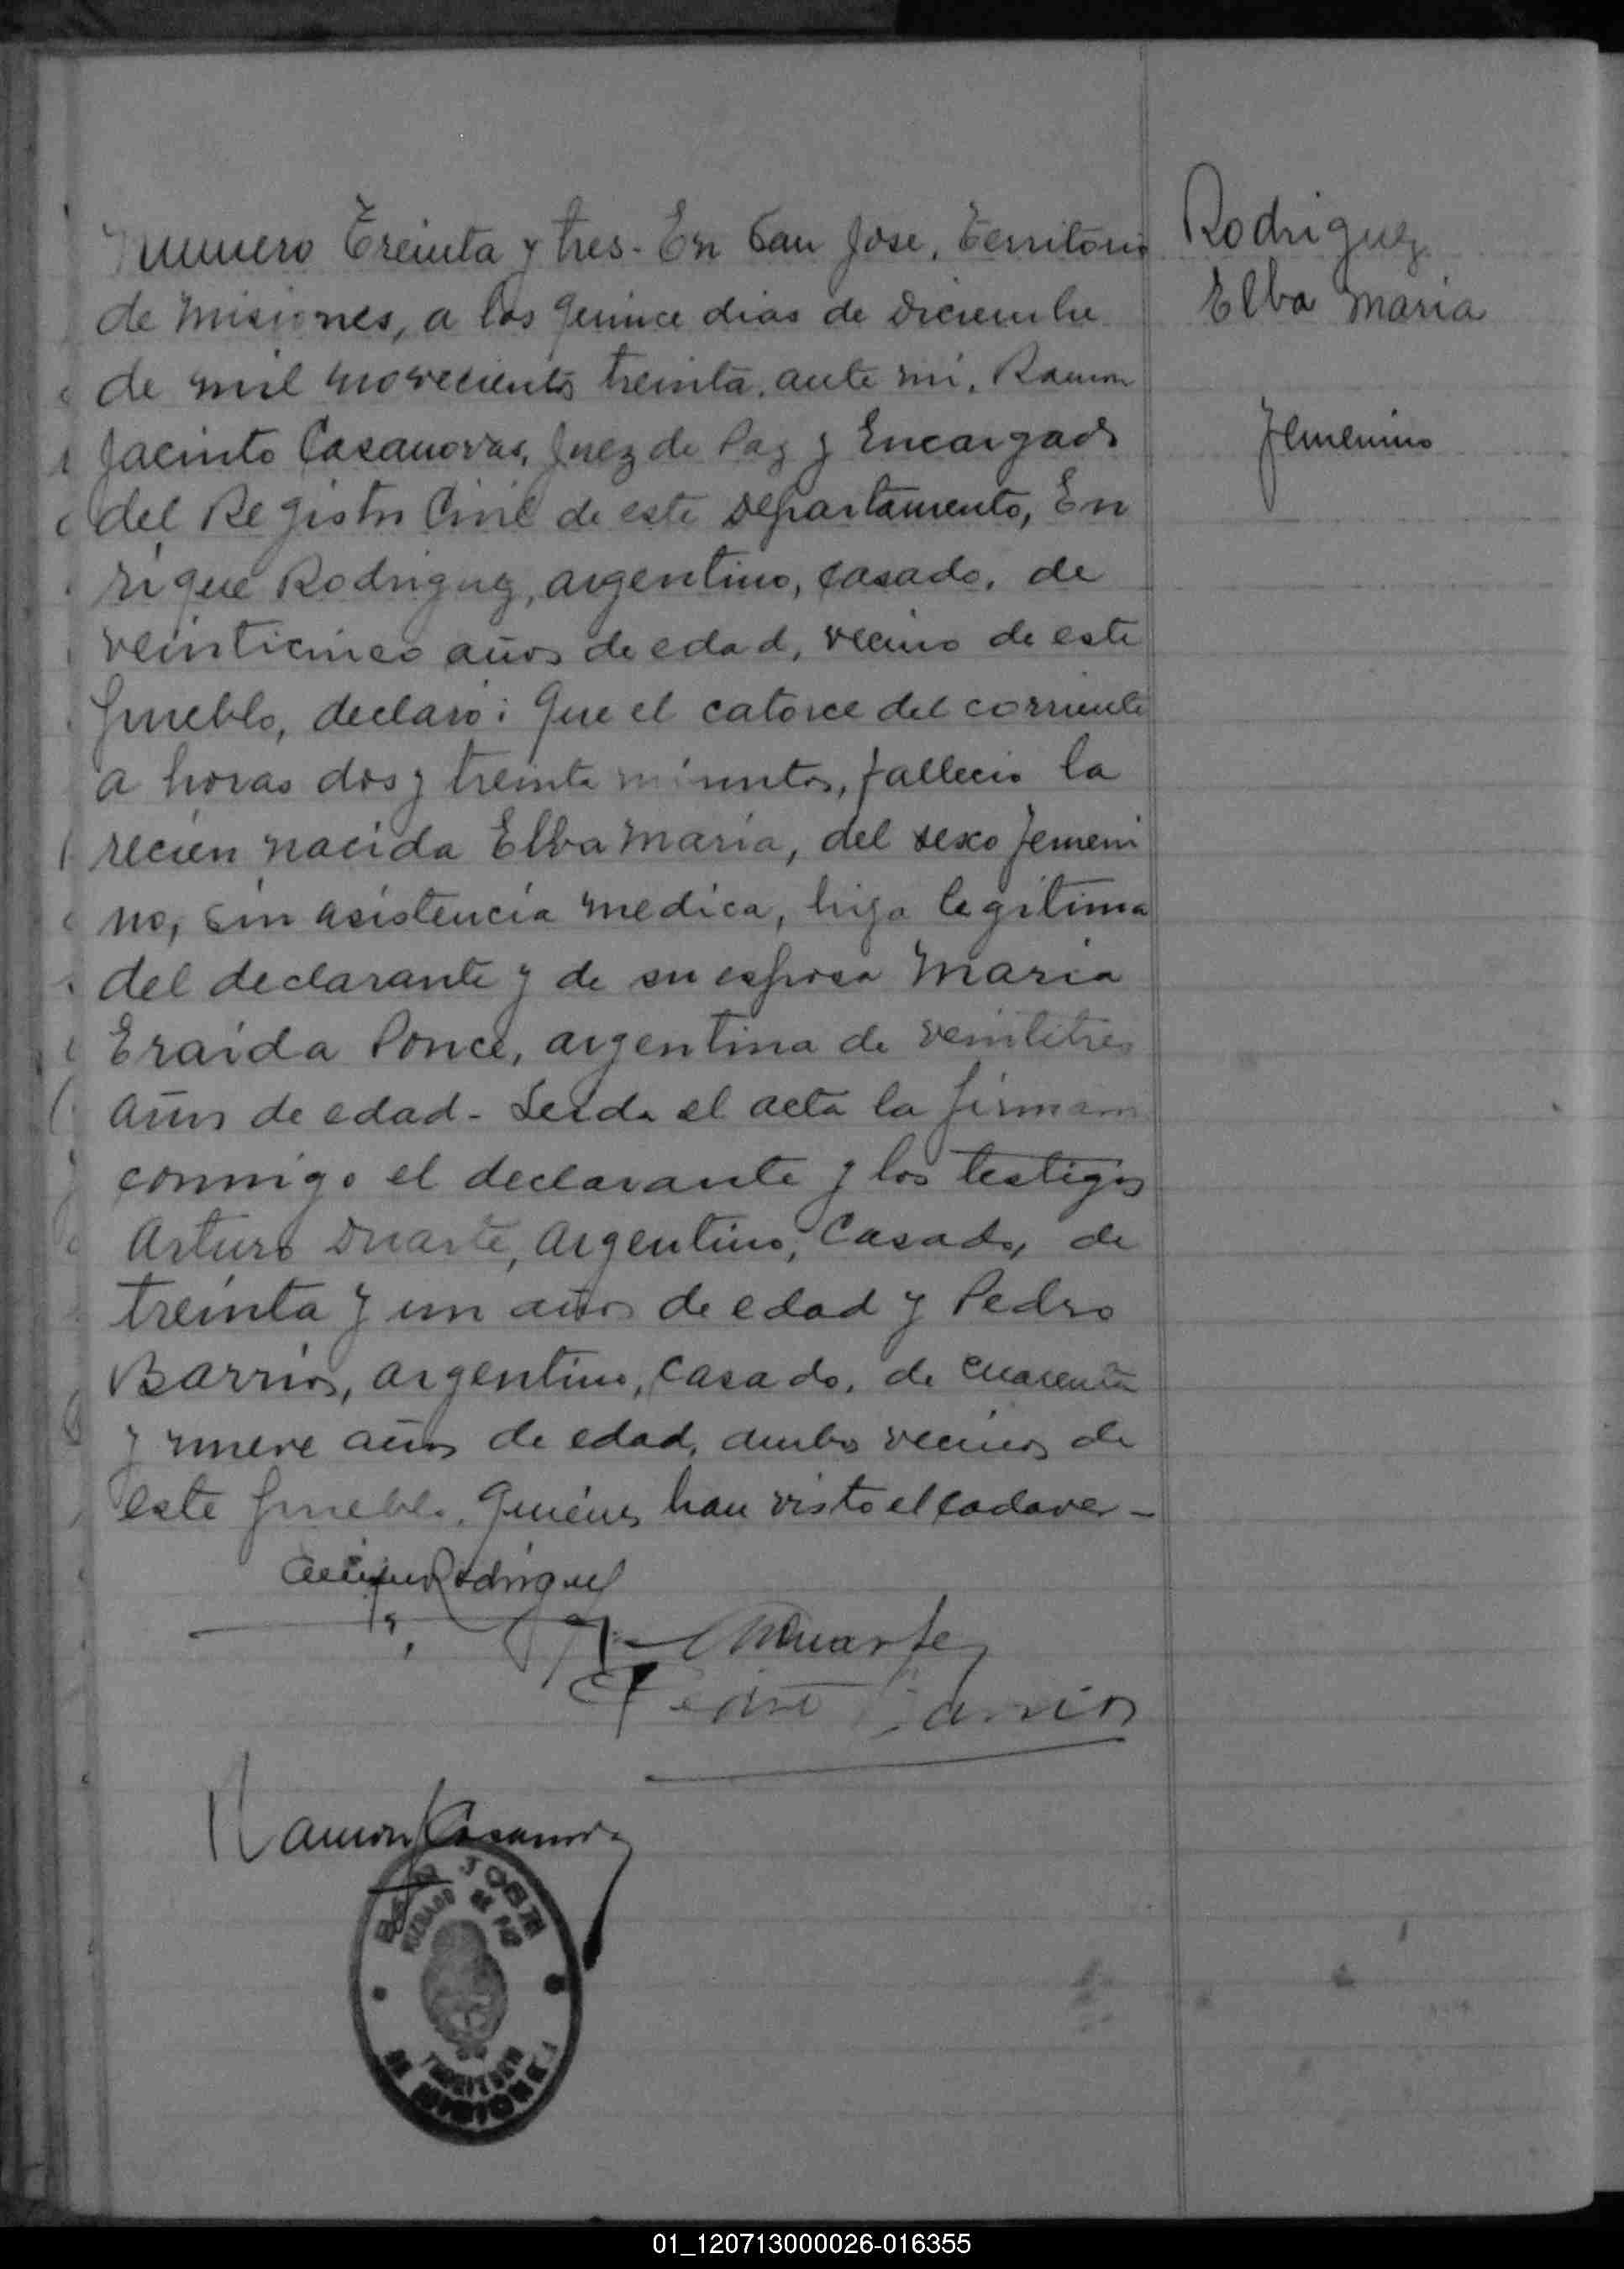 Numero Treinta y tres. En San Jose, Territorio
de Misiones, a los quince dias de Diciembre
de mil novecientos treinta, ante mi, Ramon
Jacinto Casanovas, Juez de Paz y Encargado
del Registro Civil de este Departamento, En
rique Rodriguez, argentino, casado, de
veinticinco años de edad, vecino de este
pueblo, declaro: Que el catorce del corriente
a horas dos y treinta minutos, fallecio la
recien nacida Elba Maria, del sexo femeni
no, sin asistencia medica, hija legitima
del declarante y de su esposa Maria
Eraida Ponce, argentina de veintitres
años de edad - Leida el acta la firmaron
conmigo el declarante y los testigos
Arturo Duarte, Argentino, Casado, de
treinta y un años de edad y Pedro
Barrios, argentino, casado, de cuarenta
y nueve años de edad, ambos vecinos de
este pueblo. Quienes han visto el cadaver -
Enrique Rodriguez
Duarte
Pedro Barrios
Ramon J Casanova
SAN JOSE
JUZGADO DE PAZ
TERRITORIO
DE MISIONES
Rodriguez
Elba Maria
Femenino
01_120713000026-016355